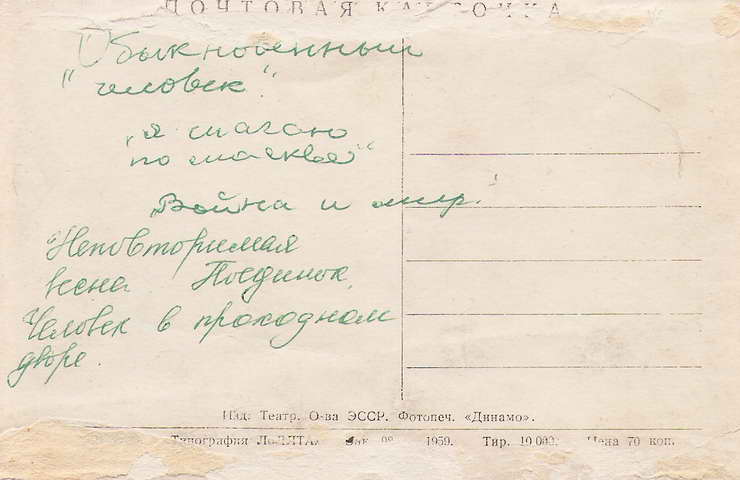 ПОЧТОВАЯ КАРТОЧКА
Обыкновенный
"человек".
„Я шагаю
по москве"
„Война и мир."
Неповторимая
весна Поединок,
Человек в проходном
дворе.
Изд. Театр. О-ва ЭССР. Фотопеч. «Динамо».
Типография 1959. Тир. 10 000. Цена 70 коп.